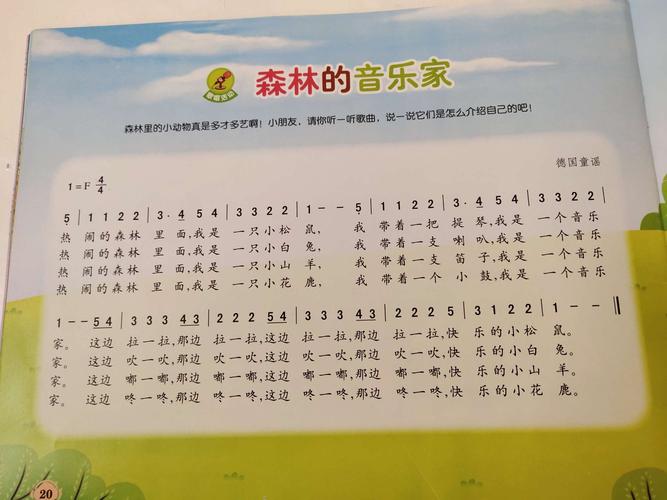 歌唱活动
森林的音乐家
森林里的小动物真是多才多艺啊！小朋友，请你听一听歌曲，说一说它们是怎么介绍自己的吧！
德国童谣
1=F 4/4
5̣ | 1 1 2 2 | 3· 4 5 4 | 3 3 2 2 | 1 - - 5̣ | 1 1 2 2 | 3· 4 5 4 | 3 3 2 2 |
热 闹的森林 里 面,我是 一只小松 鼠, 我 带着一把 提 琴,我是 一个音乐
热 闹的森林 里 面,我是 一只小白 兔, 我 带着一支 喇 叭,我是 一个音乐
热 闹的森林 里 面,我是 一只小山 羊, 我 带着一支 笛 子,我是 一个音乐
热 闹的森林 里 面,我是 一只小花 鹿, 我 带着一个 小 鼓,我是 一个音乐
1 - - 5 4 | 3 3 3 4 3 | 2 2 2 5 4 | 3 3 3 4 3 | 2 2 2 5 4 | 3 1 2 2 | 1 - - ‖
家。 这边 拉一拉,那边 拉一拉,这边 拉一拉,那边 拉一拉,快 乐的小松 鼠。
家。 这边 吹一吹,那边 吹一吹,这边 吹一吹,那边 吹一吹,快 乐的小白 兔。
家。 这边 嘟一嘟,那边 嘟一嘟,这边 嘟一嘟,那边 嘟一嘟,快 乐的小山 羊。
家。 这边 咚一咚,那边 咚一咚,这边 咚一咚,那边 咚一咚,快 乐的小花 鹿。
20